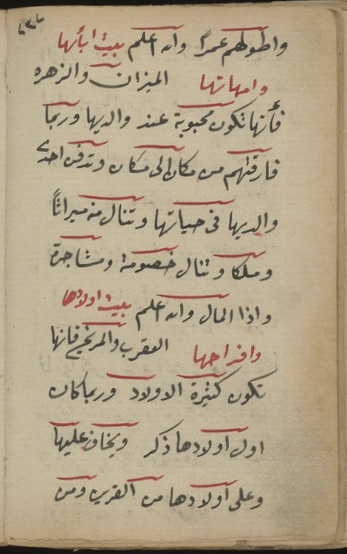 واطولهم عمرا والله اعلم بيت ابائها
وامهاتها الميزان والزهره
فأنها تكون محبوبة عند والديها وربما
فارقتهم من مكان الى مكان وتدفن احد
والديها فى حياتها وتنال منه ميراثاً
وملكا وتنال خصومة ومشاجرة
واذا المال والله اعلم بيت اولادها
وافراحها العقرب والمريخ فانها
تكون كثيرة الاولاد وربما كان
اول اولادها ذكر ويخاف عليها
وعلى اولادها من القرين ومن